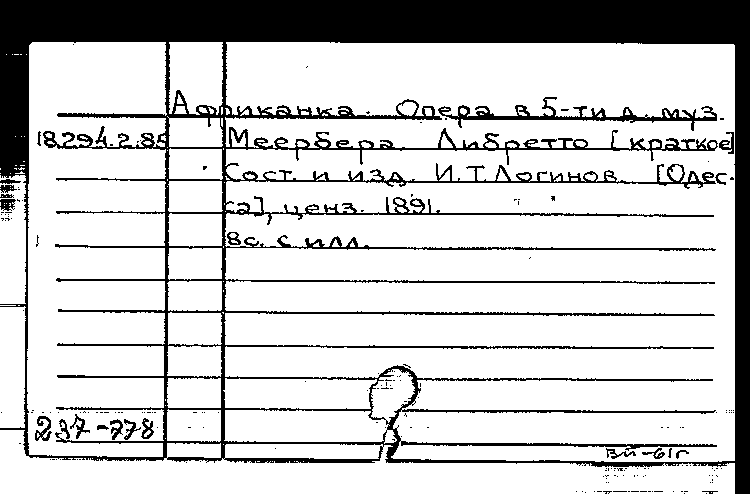 Африканка. Опера в 5-ти д., муз.
18.294.2.85 Меербера. Либретто [краткое]
Сост. и изд. И.Т.Логинов. [Одес-
са], ценз. 1891.
8с. с илл.
237-778
ВИ-61г